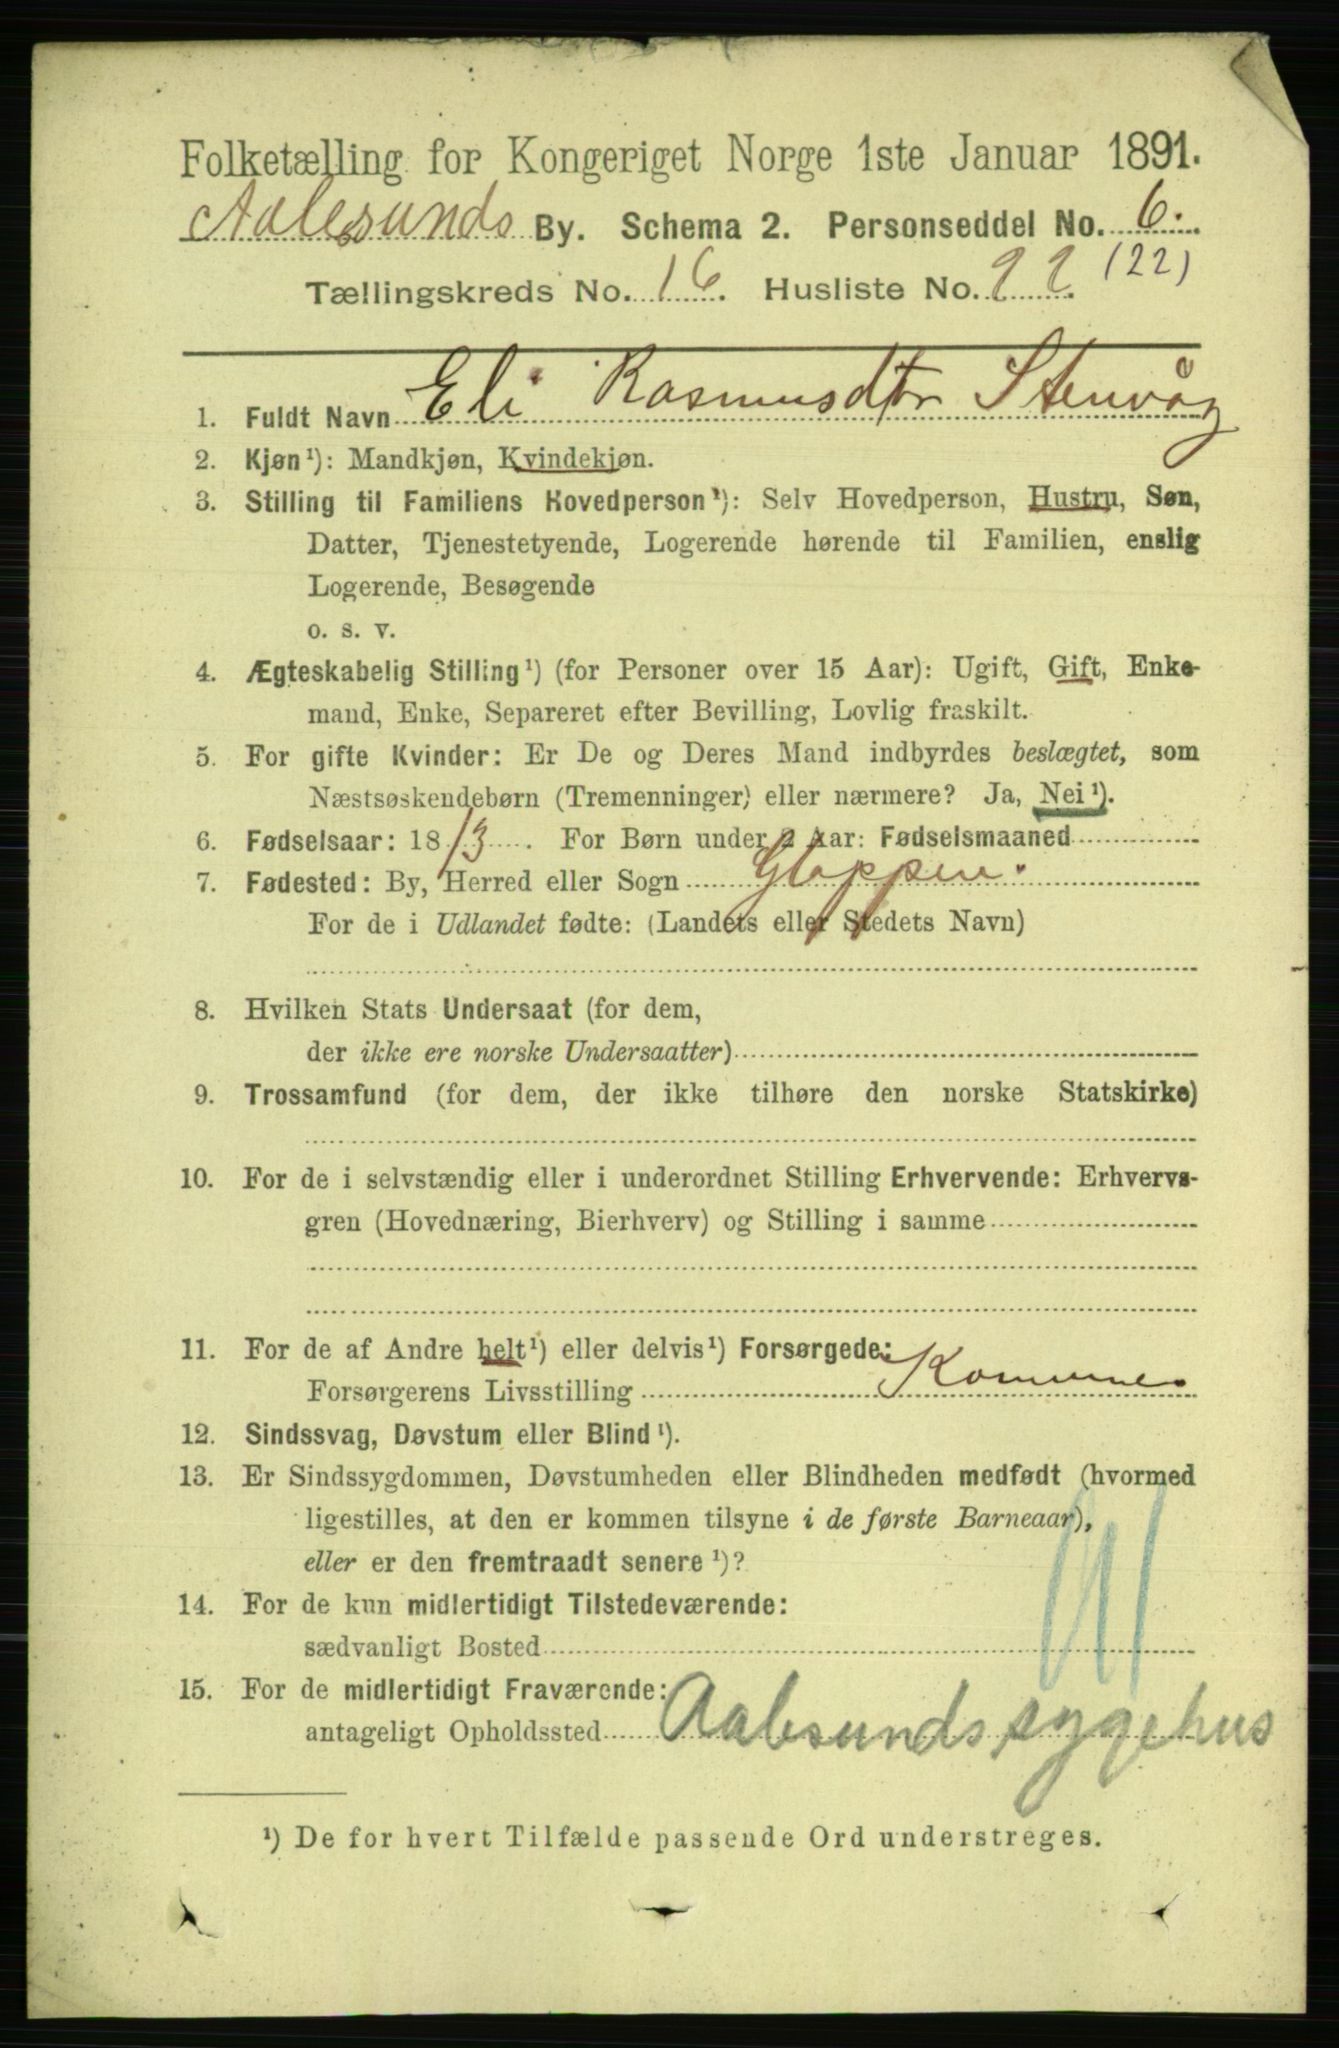 Folketælling for Kongeriget Norge 1ste Januar 1891.
Aalesunds By. Schema 2. Personseddel No. 6.
Tællingskreds No. 16. Husliste No. 22 (22)
1. Fuldt Navn Eli Rasmusdtr Stenvåg
2. Kjøn¹): Mandkjøn, Kvindekjøn.
3. Stilling til Familiens Hovedperson¹): Selv Hovedperson, Hustru, Søn,
Datter, Tjenestetyende, Logerende hørende til Familien, enslig
Logerende, Besøgende
o. s. v.
4. Ægteskabelig Stilling¹) (for Personer over 15 Aar): Ugift, Gift, Enke-
mand, Enke, Separeret efter Bevilling, Lovlig fraskilt.
5. For gifte Kvinder: Er De og Deres Mand indbyrdes beslægtet, som
Næstsøskendebørn (Tremenninger) eller nærmere? Ja, Nei¹).
6. Fødselsaar: 1813. For Børn under 2 Aar: Fødselsmaaned
7. Fødested: By, Herred eller Sogn Gloppen.
For de i Udlandet fødte: (Landets eller Stedets Navn)
8. Hvilken Stats Undersaat (for dem,
der ikke ere norske Undersaatter)
9. Trossamfund (for dem, der ikke tilhøre den norske Statskirke)
10. For de i selvstændig eller i underordnet Stilling Erhvervende: Erhvervs-
gren (Hovednæring, Bierhverv) og Stilling i samme
11. For de af Andre helt¹) eller delvis¹) Forsørgede:
Forsørgerens Livsstilling Komune.
12. Sindssvag, Døvstum eller Blind¹).
13. Er Sindssygdommen, Døvstumheden eller Blindheden medfødt (hvormed
ligestilles, at den er kommen tilsyne i de første Barneaar),
eller er den fremtraadt senere¹)?
14. For de kun midlertidigt Tilstedeværende:
sædvanligt Bosted
15. For de midlertidigt Fraværende:
antageligt Opholdssted Aalesunds sygehus
¹) De for hvert Tilfælde passende Ord understreges.